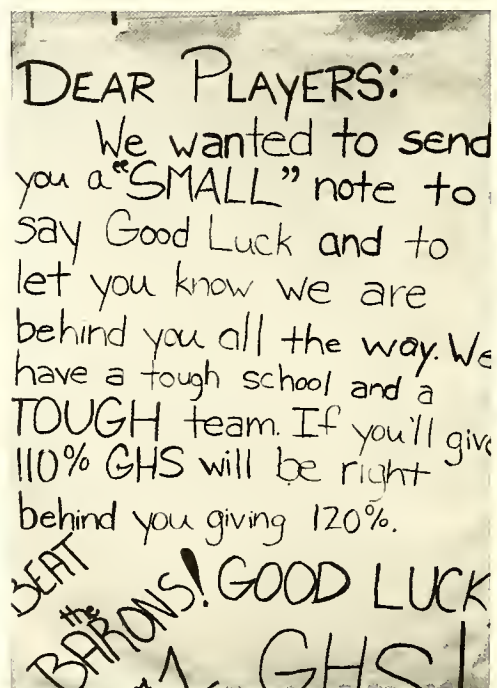 DEAR PLAYERS:
We wanted to send
you a "SMALL" note to
say Good Luck and to
let you know we are
behind you all the way. We
have a tough school and a
TOUGH team. If you'll give
110% GHS will be right
behind you giving 120%.
BEAT
the
BARONS!
GOOD LUCK
GHS!
#1